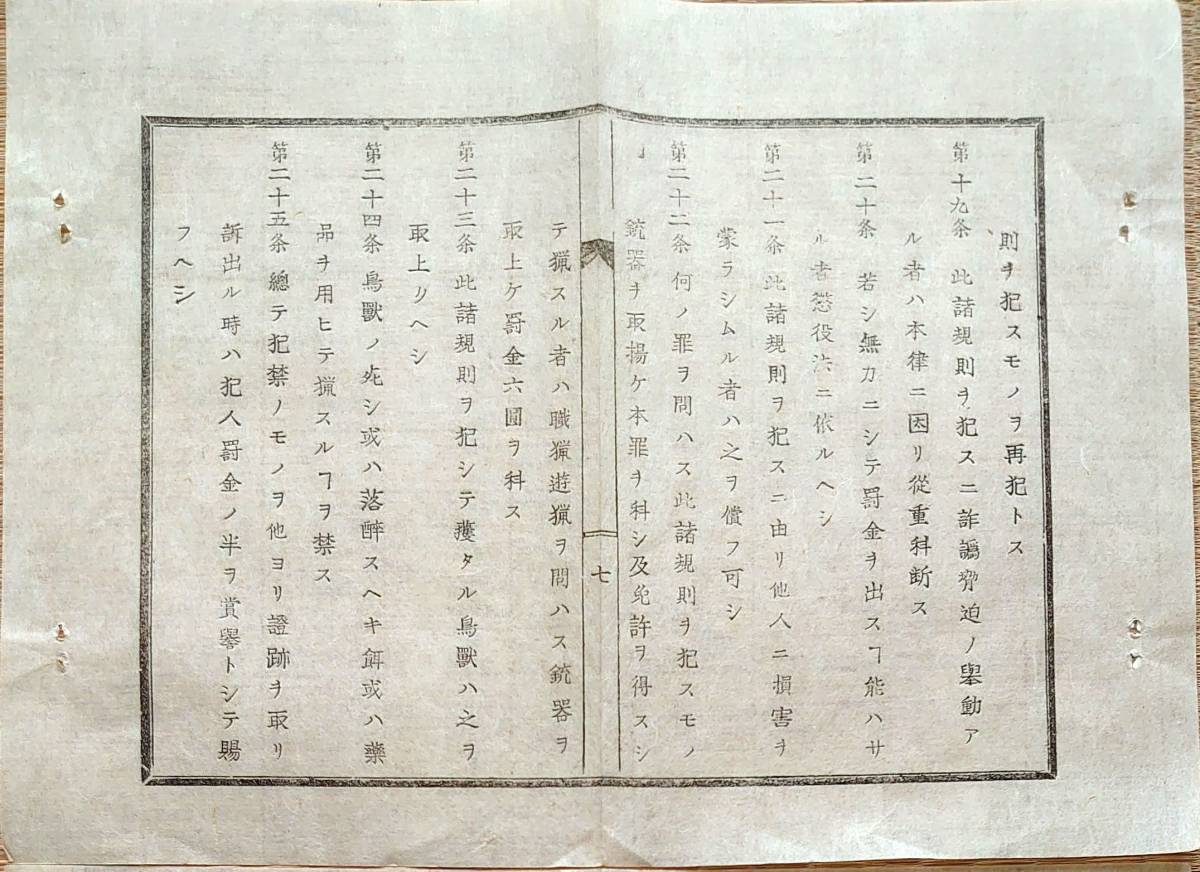 則ヲ犯スモノヲ再犯トス
第十九条 此諸規則ヲ犯スニ詐譌脅迫ノ擧動ア
ル者ハ本律ニ因リ從重科断ス
第二十条 若シ無力ニシテ罰金ヲ出スヿ能ハサ
ル者懲役法ニ依ルヘシ
第二十一条 此諸規則ヲ犯スニ由リ他人ニ損害ヲ
蒙ラシムル者ハ之ヲ償フ可シ
第二十二条 何ノ罪ヲ問ハス此諸規則ヲ犯スモノ
銃器ヲ取揚ケ本罪ヲ科シ及免許ヲ得スシ
七
テ猟スル者ハ職猟遊猟ヲ問ハス銃器ヲ
取上ケ罰金六圓ヲ科ス
第二十三条 此諸規則ヲ犯シテ獲タル鳥獸ハ之ヲ
取上リヘシ
第二十四条 鳥獸ノ死シ或ハ落醉スヘキ餌或ハ藥
品ヲ用ヒテ猟スルヿヲ禁ス
第二十五条 總テ犯禁ノモノヲ他ヨリ證跡ヲ取リ
訴出ル時ハ犯人罰金ノ半ヲ賞譽トシテ賜
フヘシ